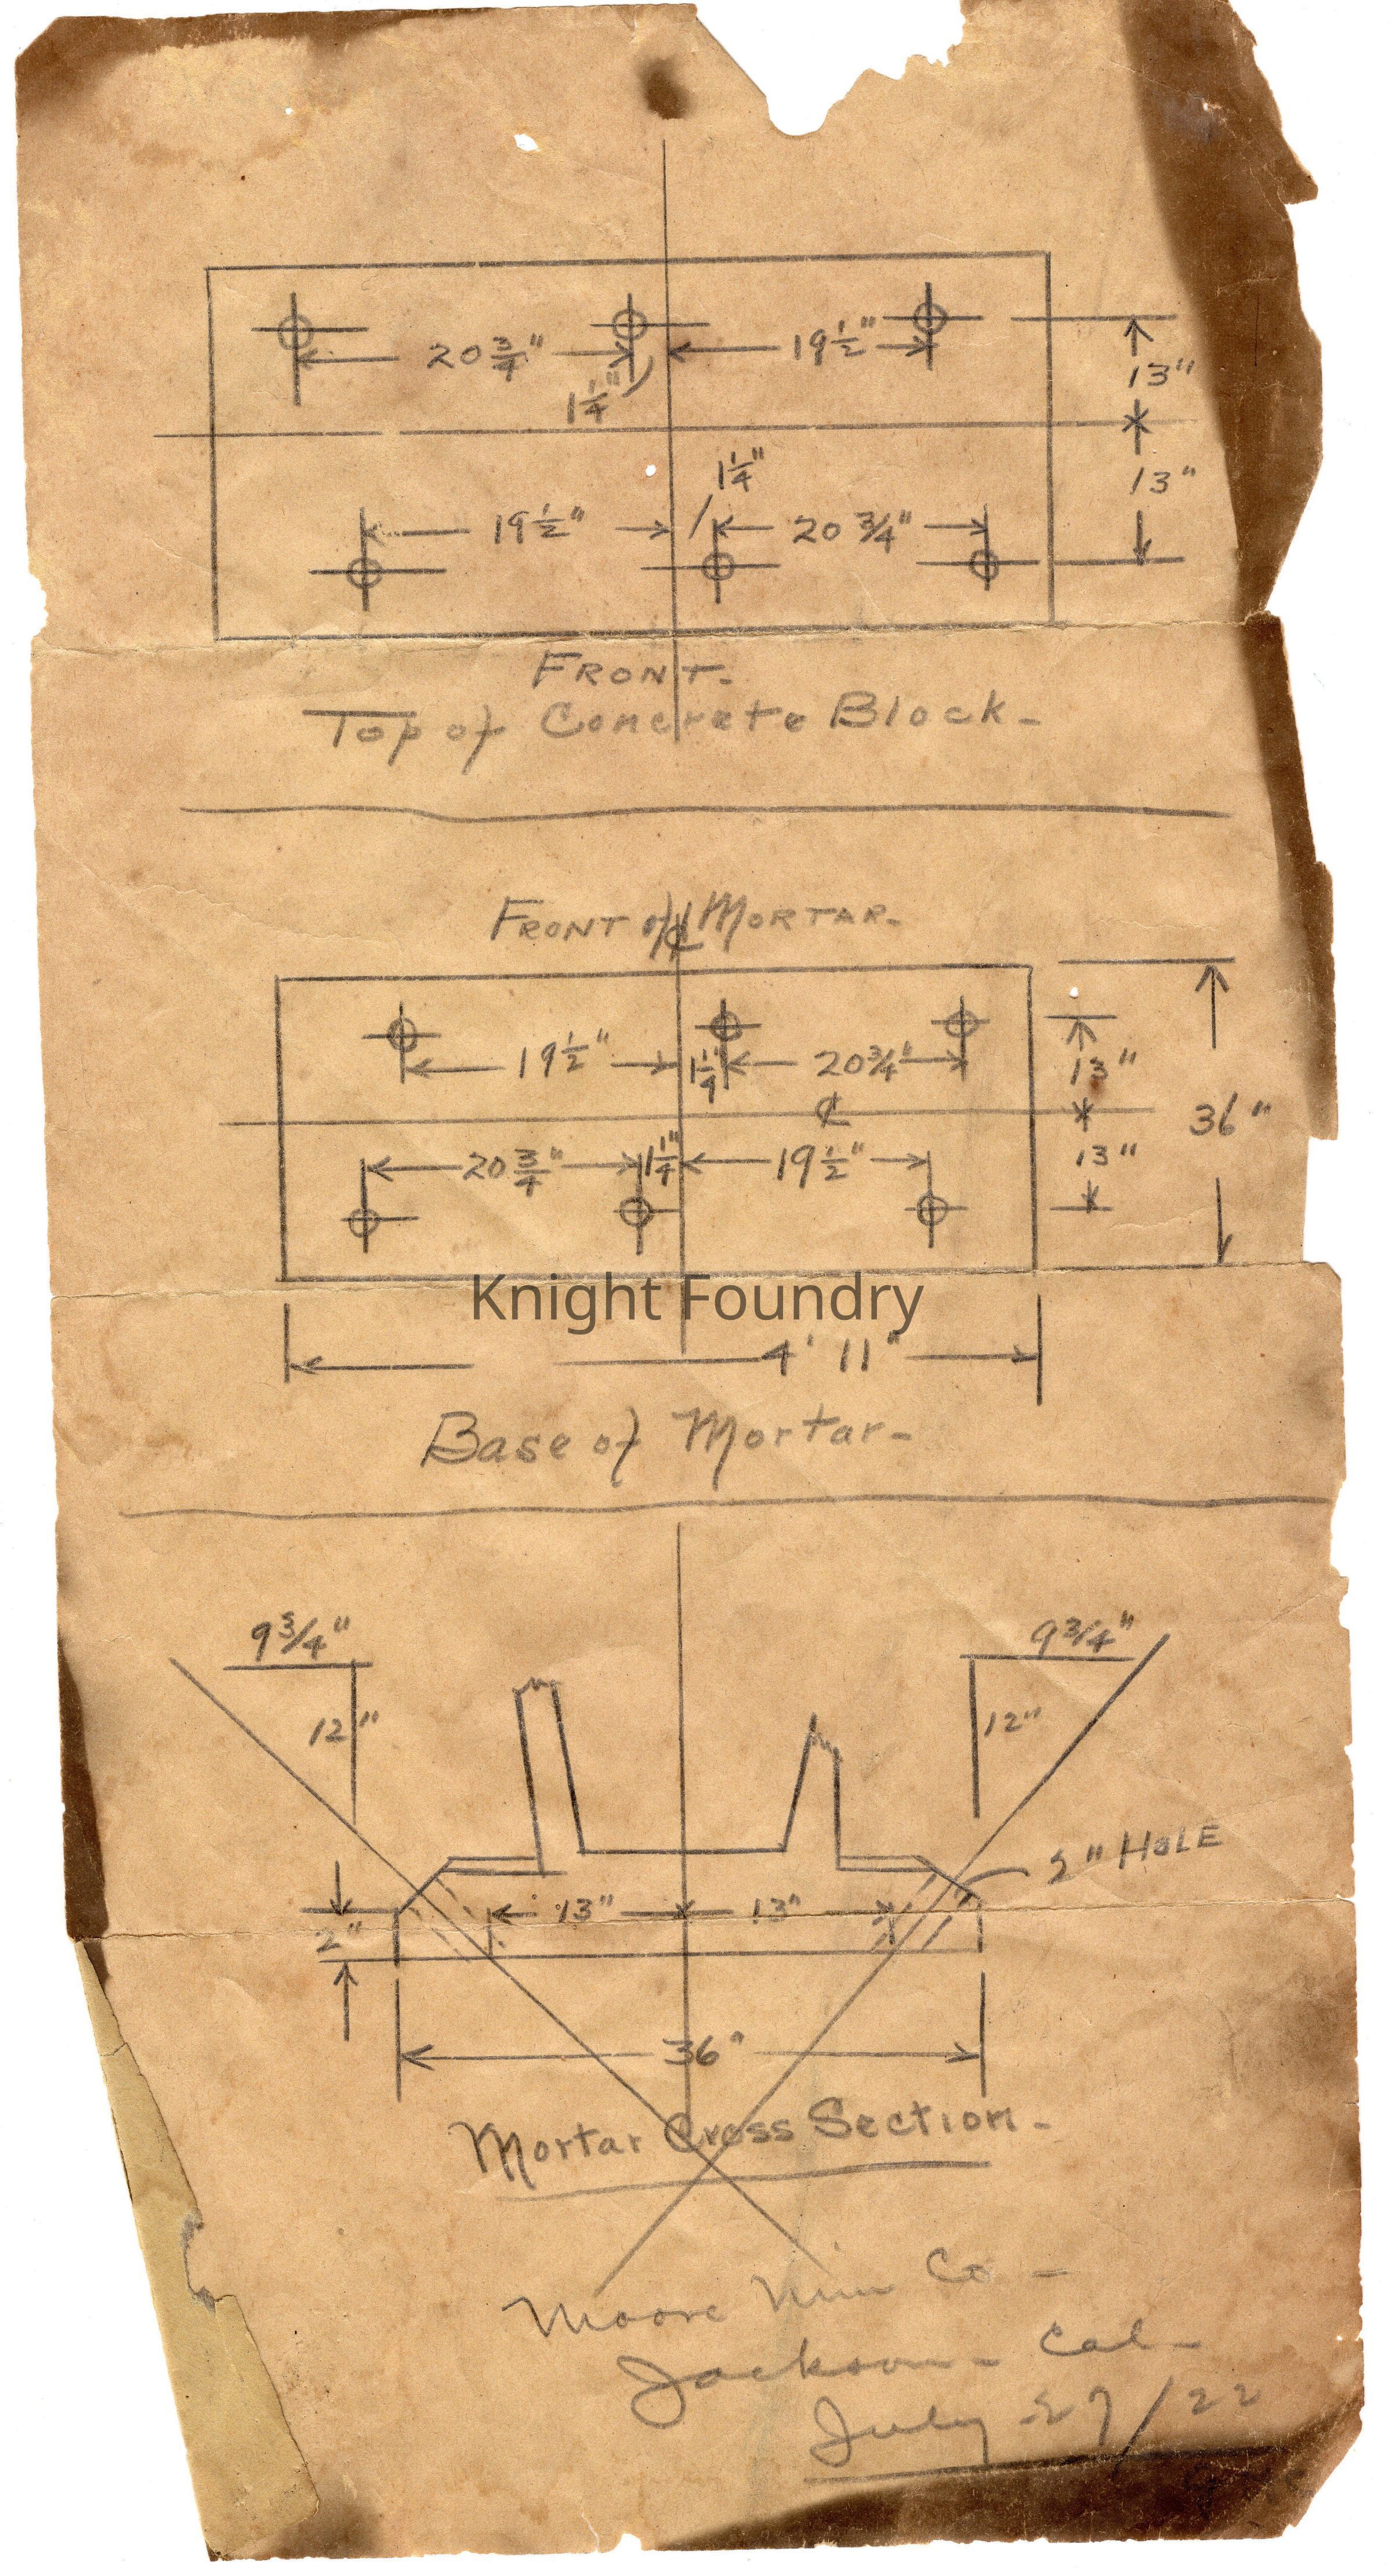 20 3/4" 19 1/2" 13"
1 1/4"
1 1/4" 13"
19 1/2" 20 3/4"
FRONT-
Top of Concrete Block-
FRONT of MORTAR-
℄
19 1/2" 1 1/4" 20 3/4" 13"
℄ 36"
20 3/4" 1 1/4" 19 1/2" 13"
Knight Foundry
4' 11"
Base of Mortar-
9 3/4" 9 3/4"
12" 12"
2" HOLE
13" 13"
2"
36"
Mortar Cross Section-
Moore Min Co -
Jackson - Cal-
July 27/22